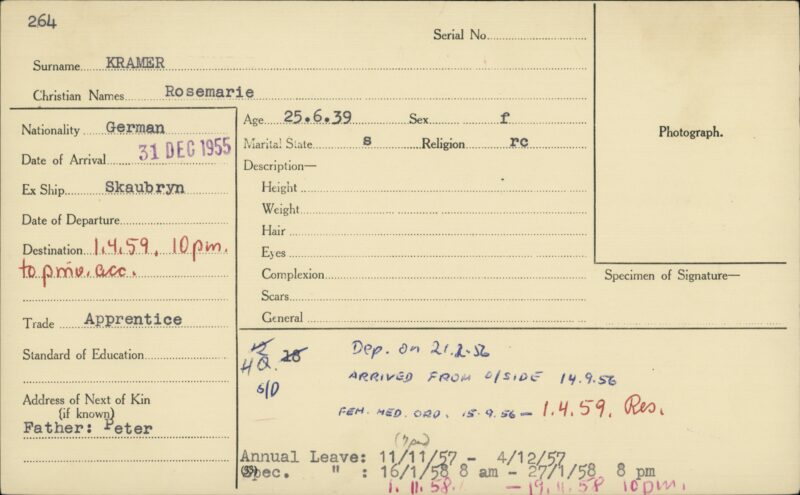 264
Serial No.
Surname KRAMER
Christian Names Rosemarie
Nationality German
Date of Arrival 31 DEC 1955
Ex Ship Skaubryn
Date of Departure
Destination 1.4.59. 10pm.
to priv. acc.
Trade Apprentice
Standard of Education
Address of Next of Kin
(if known)
Father: Peter
Age 25.6.39 Sex f
Marital State s Religion rc
Description—
Height
Weight
Hair
Eyes
Complexion
Scars
General
Photograph.
Specimen of Signature—
28 Dep. on 21.2.56
HQ. ARRIVED FROM O/SIDE 14.9.56
S/D
FEM. MED. ORD. 15.9.56 — 1.4.59. Res.
Annual Leave: 11/11/57 - 4/12/57
Spec. " : 16/1/58 8 am - 27/1/58 8 pm
1.11.58. — 19.11.58 10pm.